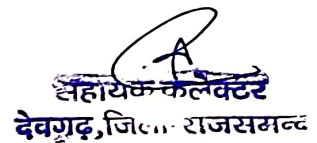 सहायक कलेक्टर
देवगढ़, जिला राजसमन्द